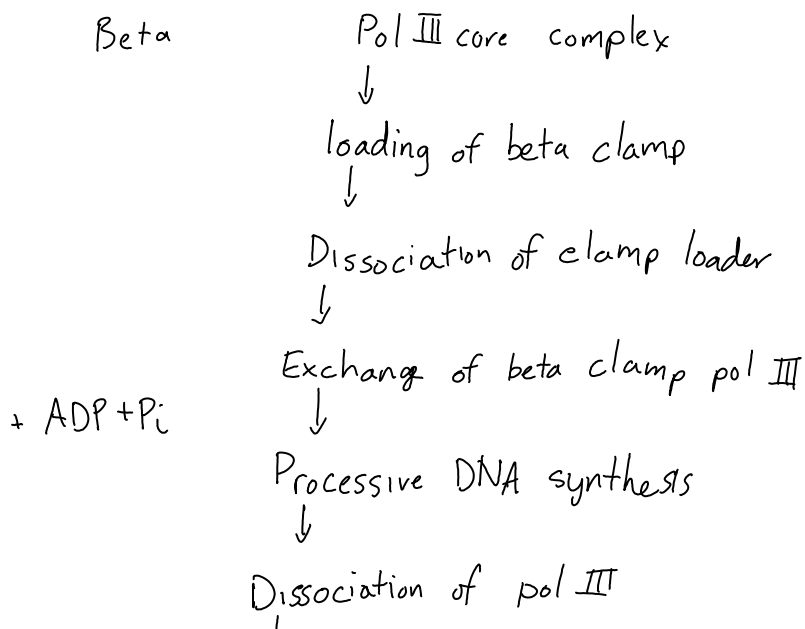 Beta Pol III core complex
↓
loading of beta clamp
↓
Dissociation of clamp loader
↓
Exchange of beta clamp pol III
+ ADP + Pi
↓
Processive DNA synthesis
↓
Dissociation of pol III